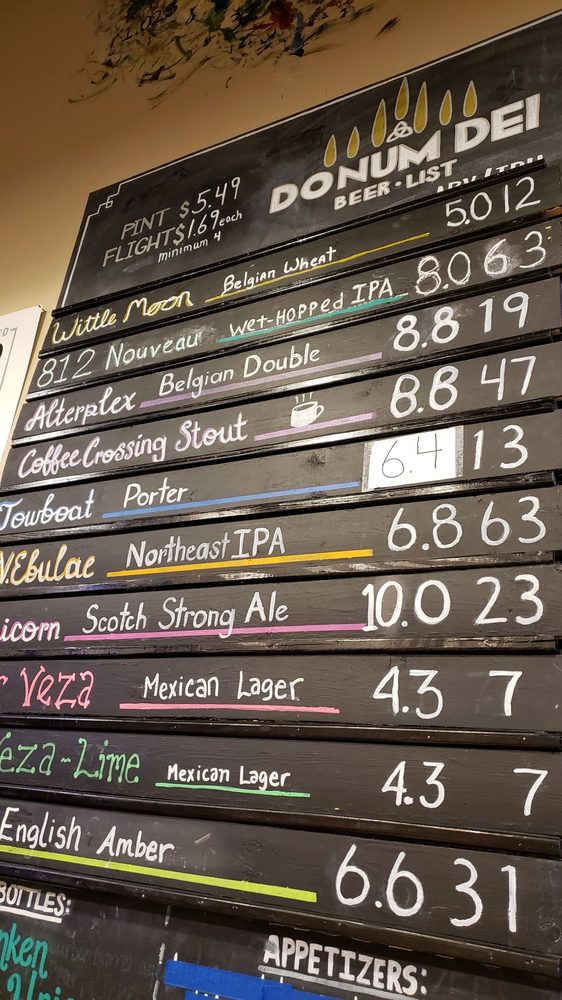 DONUM DEI
BEER • LIST
PINT $5.49
FLIGHT $1.69 each
minimum 4
ABV/IBU
Wittle Moon Belgian Wheat 5.0 12
812 Nouveau Wet-Hopped IPA 8.0 63
Alterplex Belgian Double 8.8 19
Coffee Crossing Stout 8.8 47
Towboat Porter 6.4 13
N.Ebulae Northeast IPA 6.8 63
icorn Scotch Strong Ale 10.0 23
Veza Mexican Lager 4.3 7
eza-Lime Mexican Lager 4.3 7
English Amber 6.6 31
BOTTLES:
APPETIZERS: